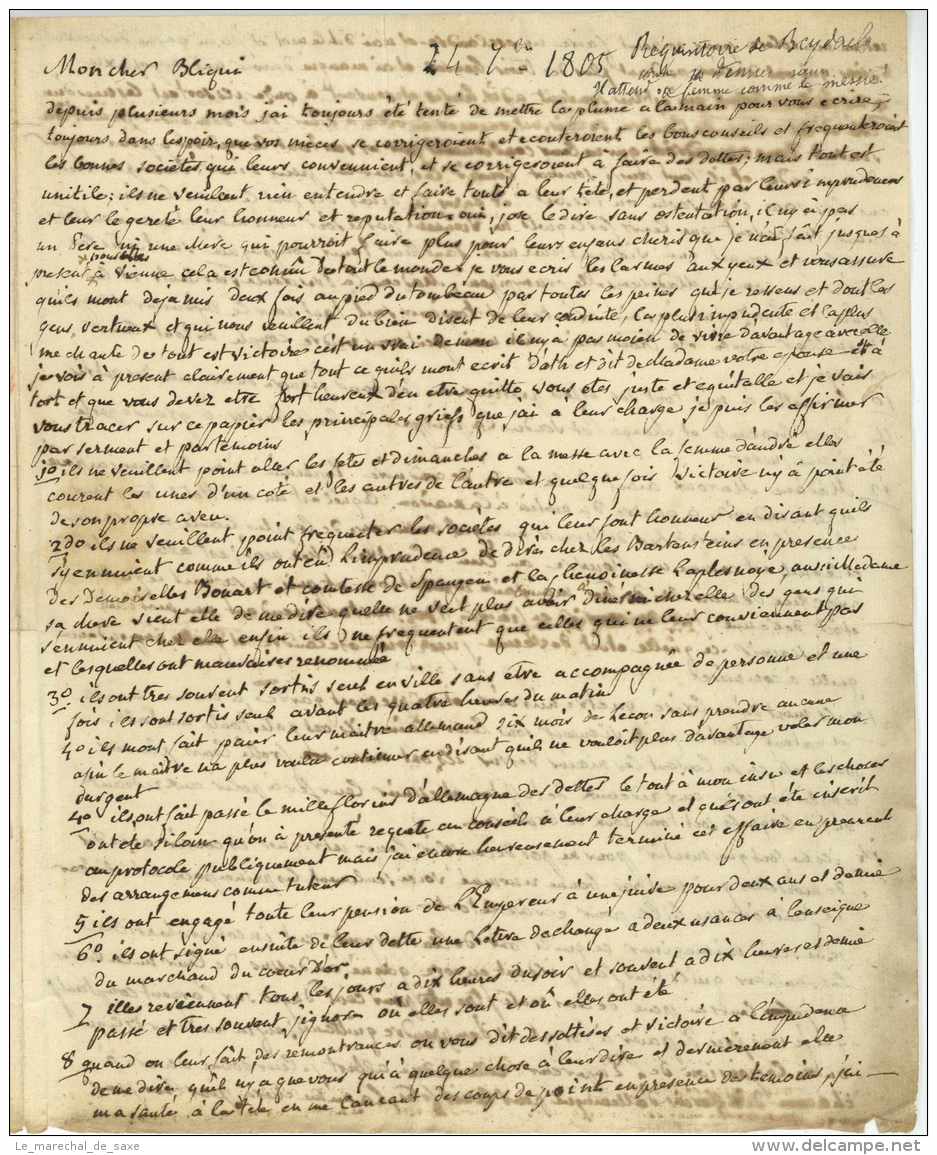 24 7bre 1805
Requisitoire de
femme comme le messie
Mon cher Bliqui
depuis plusieurs mois jai toujours été tenté de mettre la plume a la main pour vous ecrire,
toujours dans lespoir, que vos nieces se corrigeroient et ecouteroient les bons conseils et frequenteroient
les bonnes societés qui leurs conviennient, et se corrigeroient a faire des dettes; mais tout est
inutile: ils ne veullent rien entendre et faire touts a leur tete, et perdent par leurs imprudences
et leur le gereté leur honneur et reputation. oui, jose le dire sans ostentation, il ny à pas
un Pere ni une Mere qui pourroit faire plus pour leurs enfans cheris que je nai fait jusques à
present pour elles à Vienne cela est connû de tout le monde. je vous ecris les larmes aux yeux et vous assure
quils mont deja mis deux fois au pied du tombeau par toutes les peines que je ressens et dont les
gens vertueux et qui nous veuillent du bien disent de leur conduite, la plus imprudente et la plus
me chante de tout est victoire c'est un vrai demon il ny à pas moien de vivre davantage avec elle
je vois à present clairement que tout ce quils mont ecrit d'ath et dit de Madame votre epouse est à
tort et que vous devez etre fort heureux den etre quitte vous etes juste et equitable et je vais
vous tracer sur ce papier les principales griefs que jai à leur charge je puis les affirmer
par serment et par temoins
1o ils ne veuillent point aller les fetes et dimanches a la messe avec la femme dandré elles
courent les unes d'un coté et les autres de lautre et quelque fois Victoire ny à point été
de son propre aveu.
2do ils ne veuillent point frequenter les societés qui leur font honneur en disant quils
sy ennuient comme ils ont eu l'imprudence de dire chez les Bartensteins en presence
des Demoiselles Bonart et comtesse de Spangen et la chanoinesse Laplesnoye, aussi Madame
sa chere vient elle de me dire quelle ne veut plus avoir à diner chez elle des gens qui
sennuient chez elle enfin ils ne frequentent que celles qui ne leur conviennent pas
et lesquelles ont mauvaises renommée
3o. ils ont tres souvent sortis seul en ville sans etre accompagnée de personne et une
fois ils sont sortis seul avant les quatre heures du matin
4o ils mont fait paier leur maitre allemand six mois de lecon sans prendre aucune
afin le maitre na plus voulu continuer en disant quil ne vouloit plus davantage voler mon
durgent
4o ils ont fait passé le mille florins d'allemagne des dettes le tout à mon insu et les choses
ont ete si loin qu'on à presenté requete au conseil à leur charge et qu'es ont été inscrit
au protocole publiquement mais jai encore heureusement terminé cet affaire en prenent
des arrangemens comme tuteur
5 ils ont engagé toute leur pension de L'Empereur à une juive pour deux ans et demie
6o. ils ont signé ensuite de leur dette une Lettre de change a deux usances à lenseigne
du marchand du coeur D'or
7 illes reviennent tous les jours a dix heures du soir et souvent a dix heures et demie
passé et tres souvent jignore où elles sont et où elles ont été
8 quand on leur fait des remontrances on vous dit des sottises et victoire a limpudence
de me dire quil ny a que vous qui à quelque chose à leur dire et dernierement elle
ma sauté à la tete en me lancant des coups de point en presence de temoins, jai —
Le_marechal_de_saxe
www.delcampe.net